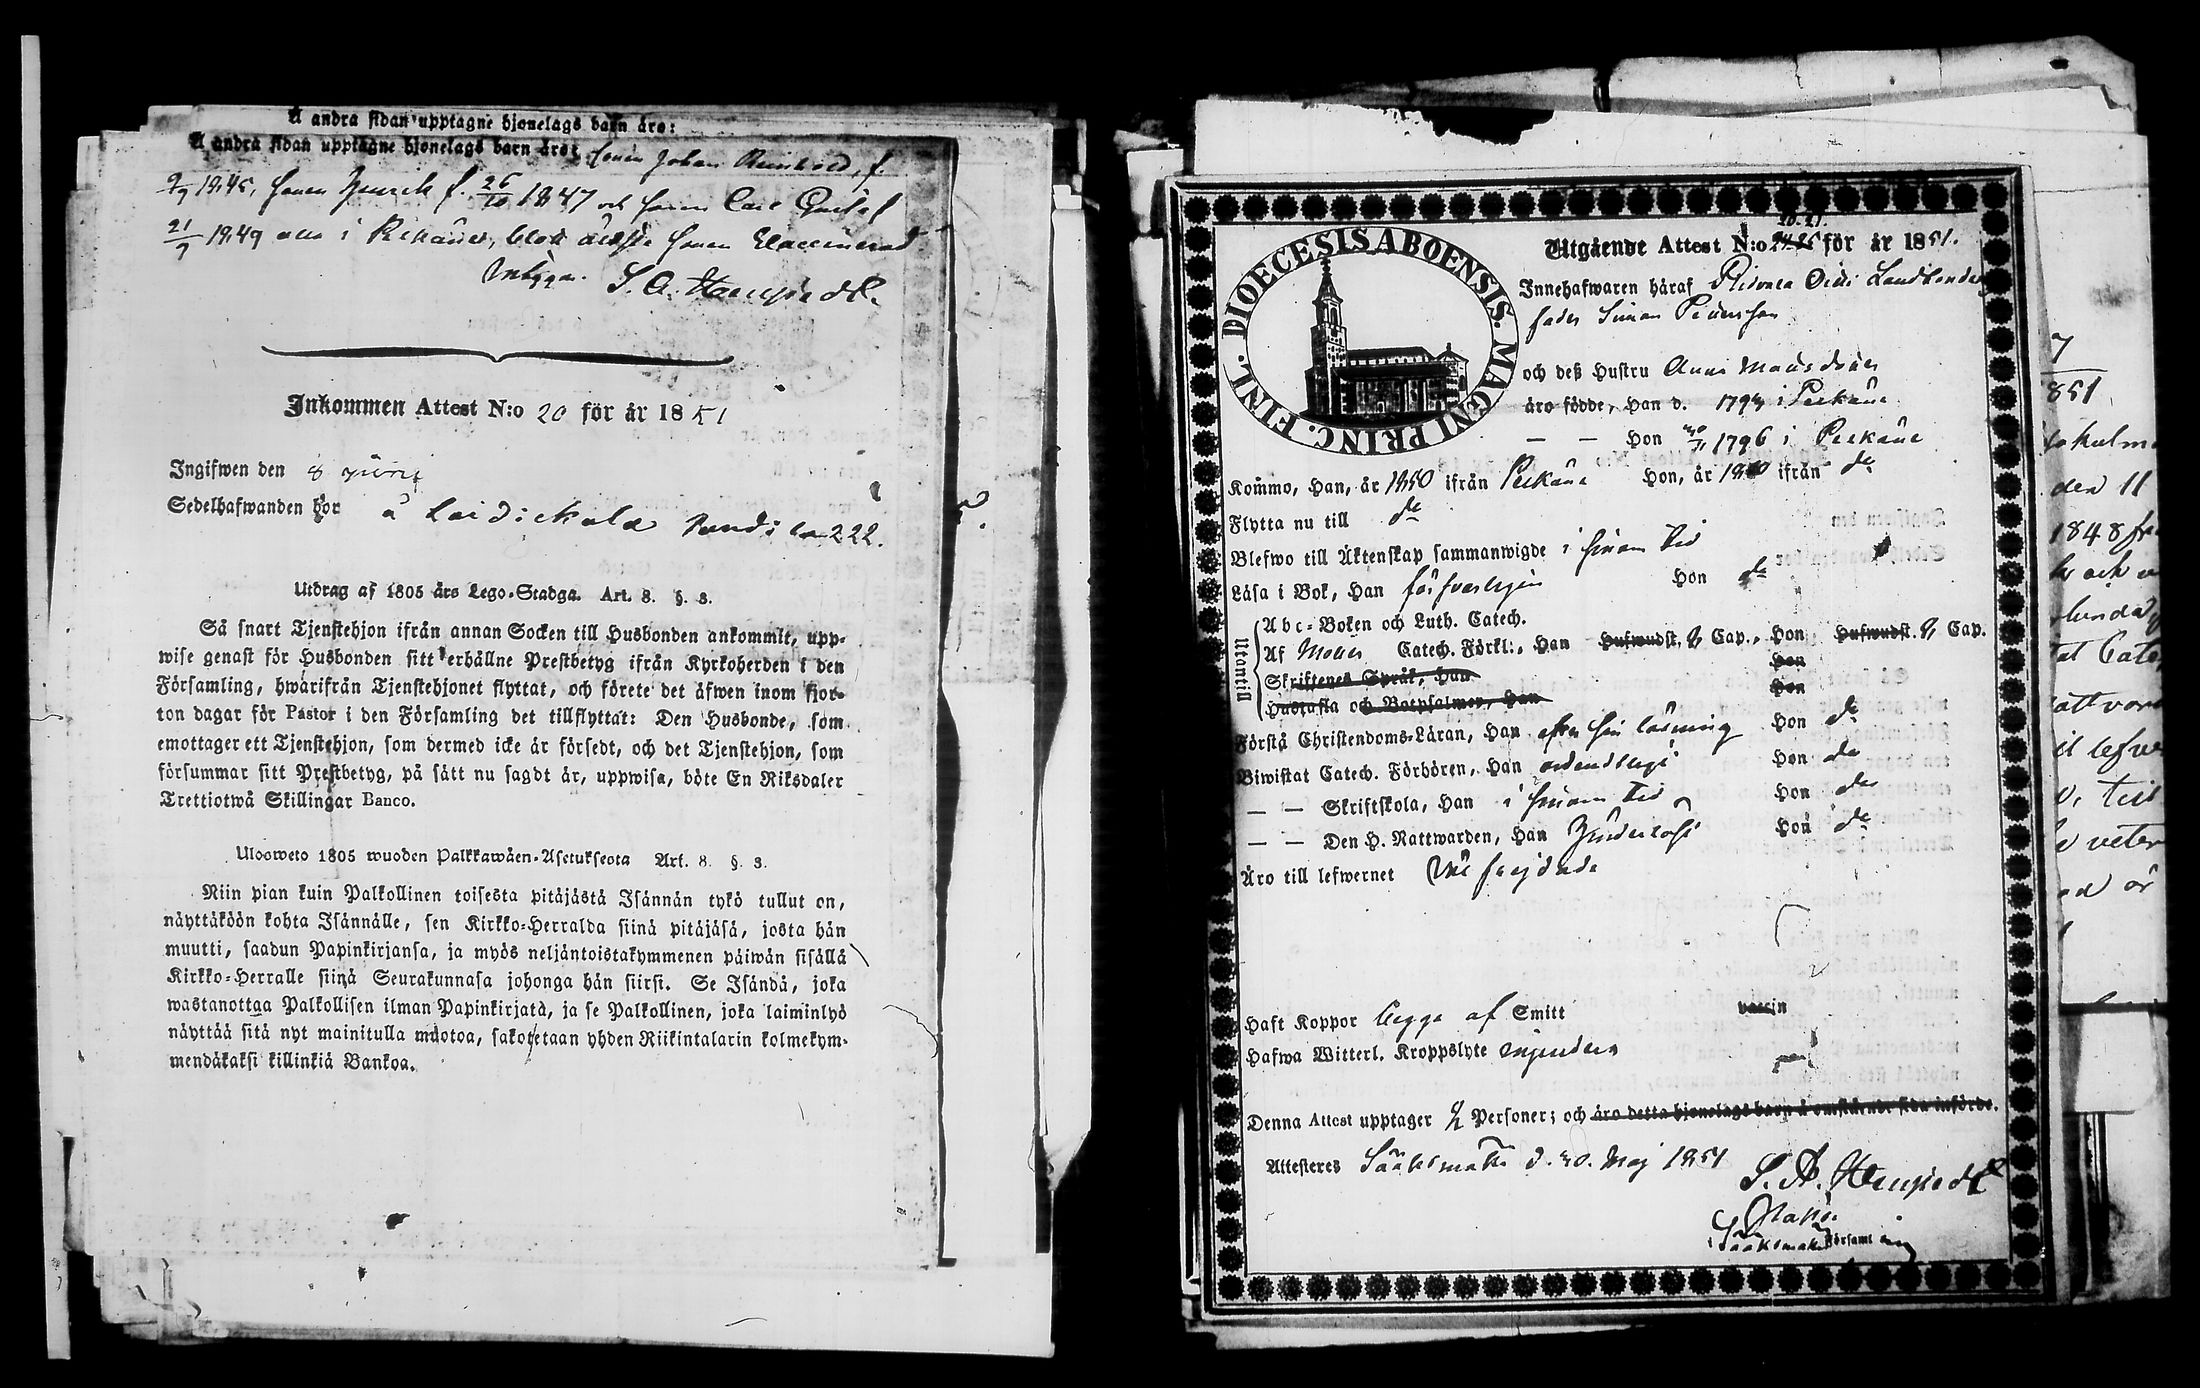 A andra sidan upptagne hjonelags barn äro:
A andra sidan upptagne hjonelags barn äro: sonen Johan Reinhold, f.
2/9 1845, sonen Henrik f. 26/10 1847 och sonen Carl Gustaf
21/7 1849 alla i
S. A. Hempedt
Inkommen Attest N:o 20 för år 1851
Ingifwen den 8 Junii
Sedelhafwanden bor å Laidickala 222.
Utdrag af 1805 års Lego-Stadga. Art. 8. §. 3.
Så snart Tjenstehjon ifrån annan Socken till Husbonden ankommit, upp-
wise genast för Husbonden sitt erhållne Prestbetyg ifrån Kyrkoherden i den
Församling, hwarifrån Tjenstehjonet flyttat, och förete det äfwen inom fjor-
ton dagar för Pastor i den Församling det tillflyttat: Den Husbonde, som
emottager ett Tjenstehjon, som dermed icke är försedt, och det Tjenstehjon, som
försummar sitt Prestbetyg, på sätt nu sagdt är, uppwisa, böte En Riksdaler
Trettiotwå Skillingar Banco.
Ulosweto 1805 wuoden Palkkawäen-Asetuksesta Art. 8. §. 3.
Niin pian kuin Palkollinen toisesta pitäjästä Isännän tykö tullut on,
näyttäköön kohta Isännälle, sen Kirkko-Herralda siinä pitäjäsä, josta hän
muutti, saadun Papinkirjansa, ja myös neljäntoistakymmenen päiwän sisällä
Kirkko-Herralle siinä Seurakunnasa johonga hän siirsi. Se Isändä, joka
wastanottaa Palkollisen ilman Papinkirjatä, ja se Palkollinen, joka laiminlyö
näyttää sitä nyt mainitulla muotoa, sakotetaan yhden Riikintalarin kolmekym-
mendäkaksi killinkiä Bankoa.
DIOECESIS ABOENSIS. MAGNI PRINC. FINL.
20. 21.
Utgående Attest N:o 24.25 för år 1851.
Innehafwaren häraf Landbonde
fader Simon
och deß Hustru Anna Matsdoter
äro födde, Han d. 1794 i Pelkäne
— — Hon 30/11 1796 i Pelkäne
Kommo, Han, år 1850 ifrån Pelkäne Hon, år 1850 ifrån do
Flytta nu till do
Blefwo till Äktenskap sammanwigde i sinom tid
Läsa i Bok, Han försvarligen Hon do
Utantill
Abc-Boken och Luth. Catech.
Af Catech. Förkl:, Han Hufwudst. Cap., Hon Hufwudst. Cap.
Skriftenes Språk, Han Hon
Hustafla och Botpsalmer, Han Hon
Förstå Christendoms-Läran, Han efter sin läsning Hon do
Biwistat Catech. Förhören, Han ordentligt Hon do
— — Skriftskola, Han i sinom tid Hon do
— — Den H. Nattwarden, Han Hon do
Äro till lefwernet Väl frejdade
Haft Koppor begge af Smitt vaccin
Hafwa Witterl. Kroppslyte ingendera
Denna Attest upptager 2 Personer; och äro detta hjonelags barn å omstående sida införde.
Attesteres Sääksmäki d. 30. Maj 1851
S. A. Hempedt
Sääksmäki Församling
7
851
den 11
1848